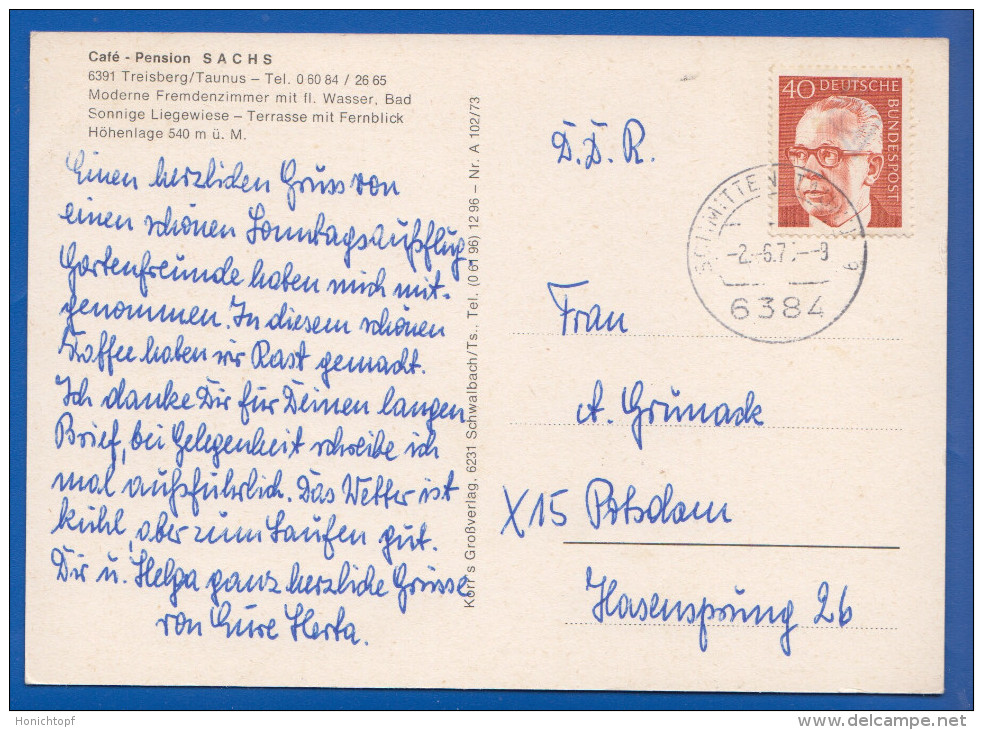 Café - Pension SACHS
6391 Treisberg/Taunus – Tel. 0 60 84 / 26 65
Moderne Fremdenzimmer mit fl. Wasser, Bad
Sonnige Liegewiese – Terrasse mit Fernblick
Höhenlage 540 m ü. M.
Einen herzlichen Gruss von
einen schönen Sonntagsaufflug.
Gartenfreunde haben mich mit-
genommen. In diesem schönen
Kaffee haben wir Rast gemacht.
Ich danke Dir für Deinen langen
Brief, bei Gelegenheit schreibe ich
mal ausführlich. Das Wetter ist
kühl, aber zum Laufen gut.
Dir u. Helga ganz herzliche Grüsse
von Eure Herta.
Korr's Großverlag, 6231 Schwalbach/Ts., Tel. (0 61 96) 12 96 – Nr. A 102/73
40 DEUTSCHE
BUNDESPOST
-2.-6.7 .--8
6384
D.D.R.
Frau
A. Grunack
X15 Potsdam
Hasensprung 26
Honichtopf
www.delcampe.net